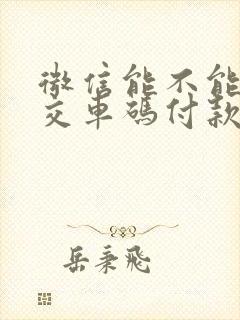 微信能不能
交车码付款
岳秉飛